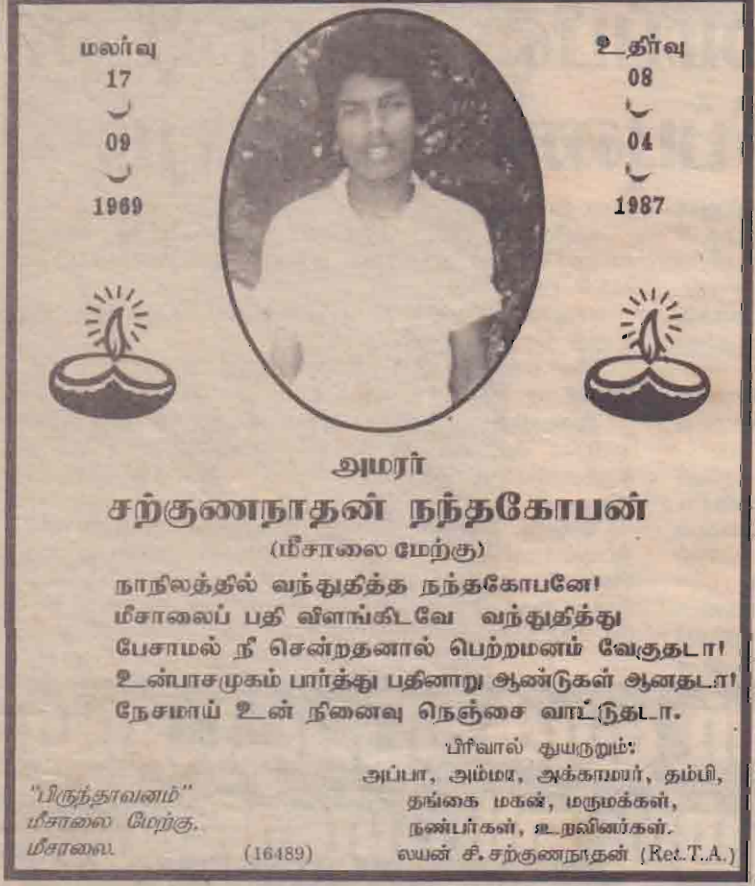 மலர்வு
17
09
1969
உதிர்வு
08
04
1987
அமரர்
சற்குணநாதன் நந்தகோபன்
(மீசாலை மேற்கு)
நாநிலத்தில் வந்துதித்த நந்தகோபனே!
மீசாலைப் பதி விளங்கிடவே வந்துதித்து
பேசாமல் நீ சென்றதனால் பெற்றமனம் வேகுதடா!
உன்பாசமுகம் பார்த்து பதினாறு ஆண்டுகள் ஆனதடா!
நேசமாய் உன் நினைவு நெஞ்சை வாட்டுதடா.
பிரிவால் துயருறும்:
அப்பா, அம்மா, அக்காமார், தம்பி,
தங்கை மகன், மருமக்கள்,
நண்பர்கள், உறவினர்கள்.
லயன் சி. சற்குணநாதன் (Ret.T.A.)
"பிருந்தாவனம்"
மீசாலை மேற்கு,
மீசாலை.
(16489)